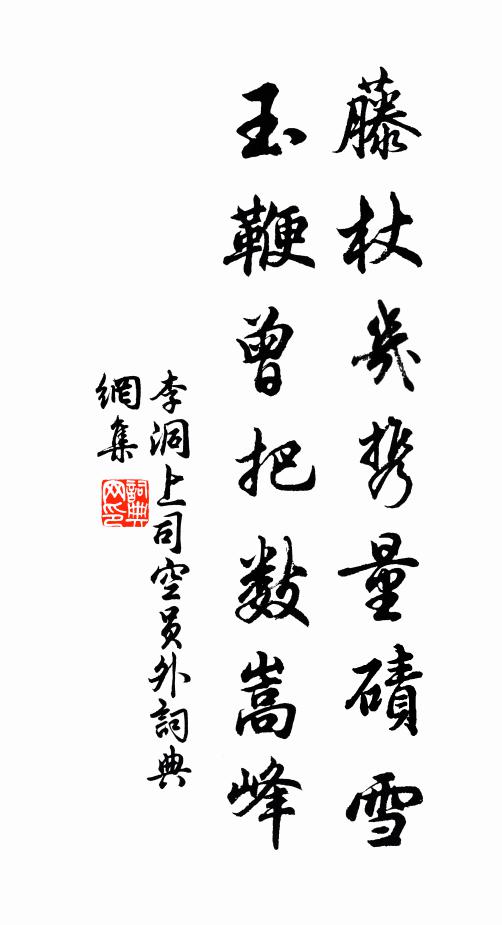 藤杖幾携量磧雪
玉鞭曾把數嵩峰
李洞上司空員外詞典
網集
詞典
网印